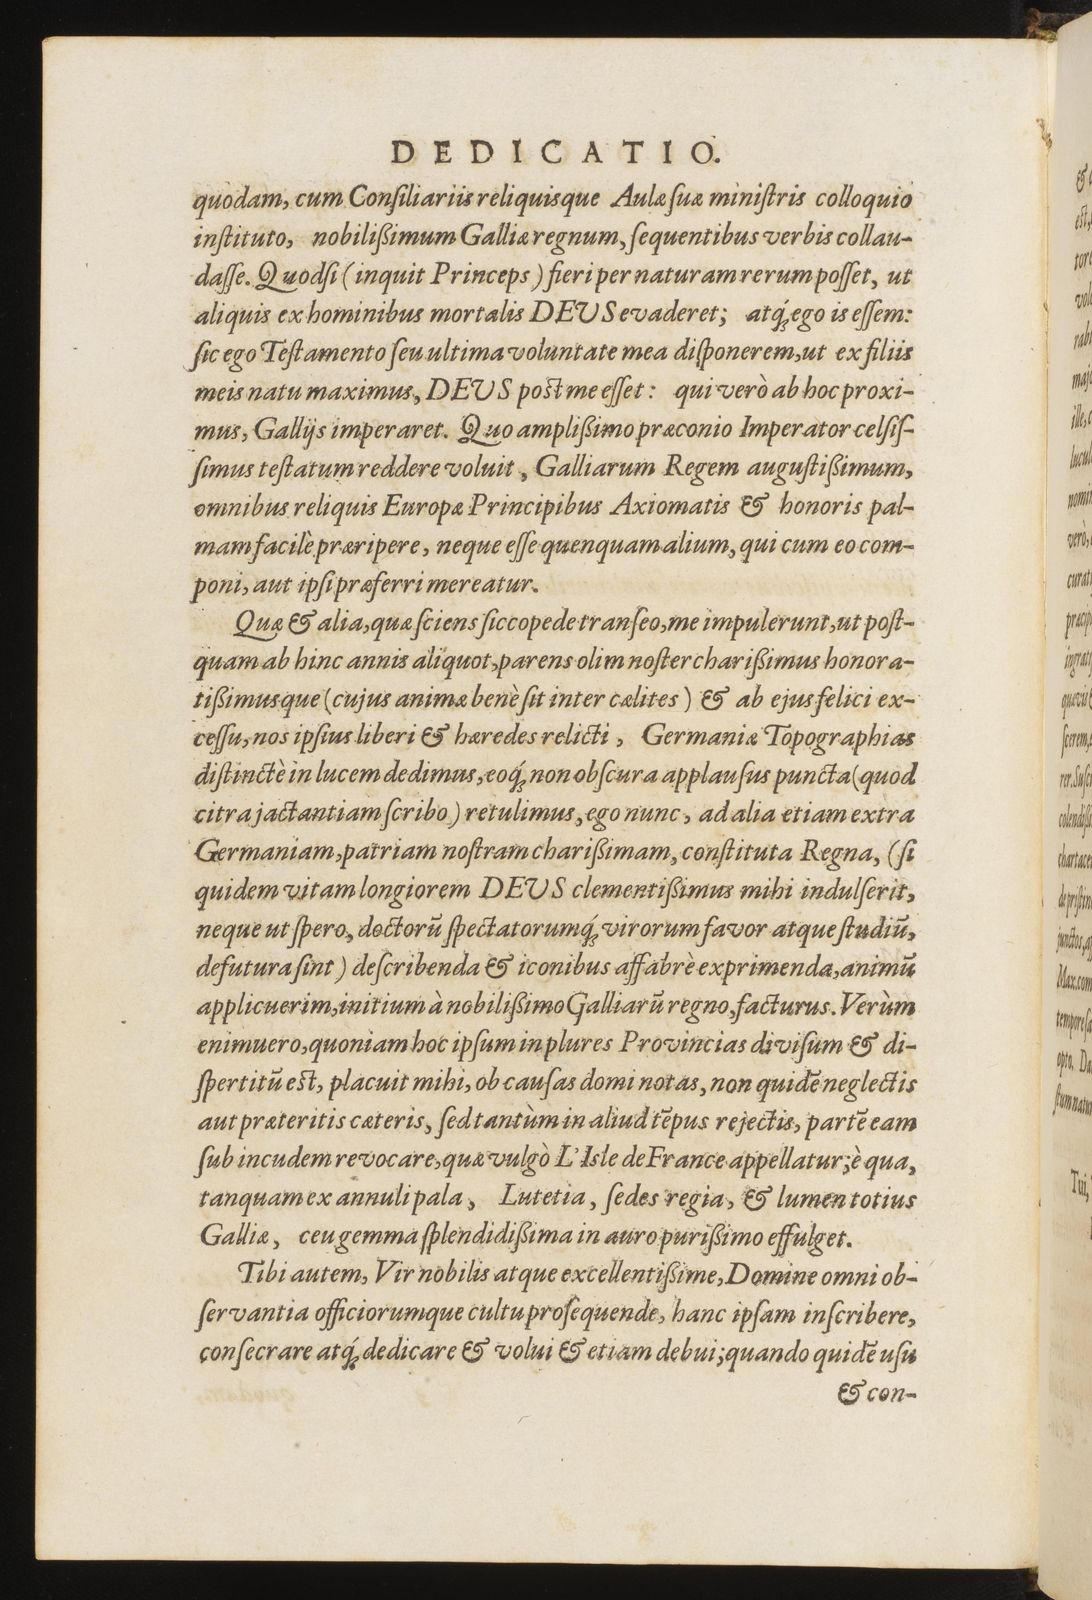 DEDICATIO.
quodam, cum Conſiliariis reliquisque Aulæ ſuæ miniſtris colloquio
inſtituto, nobilißimum Galliæ regnum, ſequentibus verbis collau-
daſſe. Quodſi (inquit Princeps) fieri per naturam rerum poſſet, ut
aliquis ex hominibus mortalis DEUS evaderet; atq́; ego is eſſem:
ſic ego Teſtamento ſeu ultima voluntate mea diſponerem, ut ex filiis
meis natu maximus, DEUS poſt me eſſet: qui verò ab hoc proxi-
mus, Gallijs imperaret. Quo ampliſſimo præconio Imperator celſiſ-
ſimus teſtatum reddere voluit, Galliarum Regem auguſtißimum,
omnibus reliquis Europæ Principibus Axiomatis & honoris pal-
mam facilè præripere, neque eſſe quenquam alium, qui cum eo com-
poni, aut ipſi præferri mereatur.
Quæ & alia, quæ ſciens ſicco pede tranſeo, me impulerunt, ut poſt-
quam ab hinc annis aliquot, parens olim noſter charißimus honora-
tißimusque (cujus animæ benè ſit inter cælites) & ab ejus felici ex-
ceſſu, nos ipſius liberi & hæredes relicti, Germaniæ Topographias
diſtinctè in lucem dedimus, eoq́; non obſcura applauſus puncta (quod
citra jactantiam ſcribo) retulimus, ego nunc, ad alia etiam extra
Germaniam, patriam noſtram charißimam, conſtituta Regna, (ſi
quidem vitam longiorem DEUS clementißimus mihi indulſerit,
neque ut ſpero, doctorū ſpectatorumq́; virorum favor atque ſtudiū,
defutura ſint) deſcribenda & iconibus affabrè exprimenda, animū
applicuerim, initium à nobilißimo Galliarū regno, facturus. Verùm
enimuero, quoniam hoc ipſum in plures Provincias diviſum & di-
ſpertitū eſt, placuit mihi, ob cauſas domi notas, non quidē neglectis
aut præteritis cæteris, ſed tantùm in aliud tēpus rejectis, partē eam
ſub incudem revocare, quæ vulgò L'Isle de France appellatur; è qua,
tanquam ex annuli pala, Lutetia, ſedes regia, & lumen totius
Galliæ, ceu gemma ſplendidißima in auro purißimo effulget.
Tibi autem, Vir nobilis atque excellentißime, Domine omni ob-
ſervantia officiorumque cultu proſequende, hanc ipſam inſcribere,
conſecrare atq́; dedicare & volui & etiam debui; quando quidē uſu
& con-